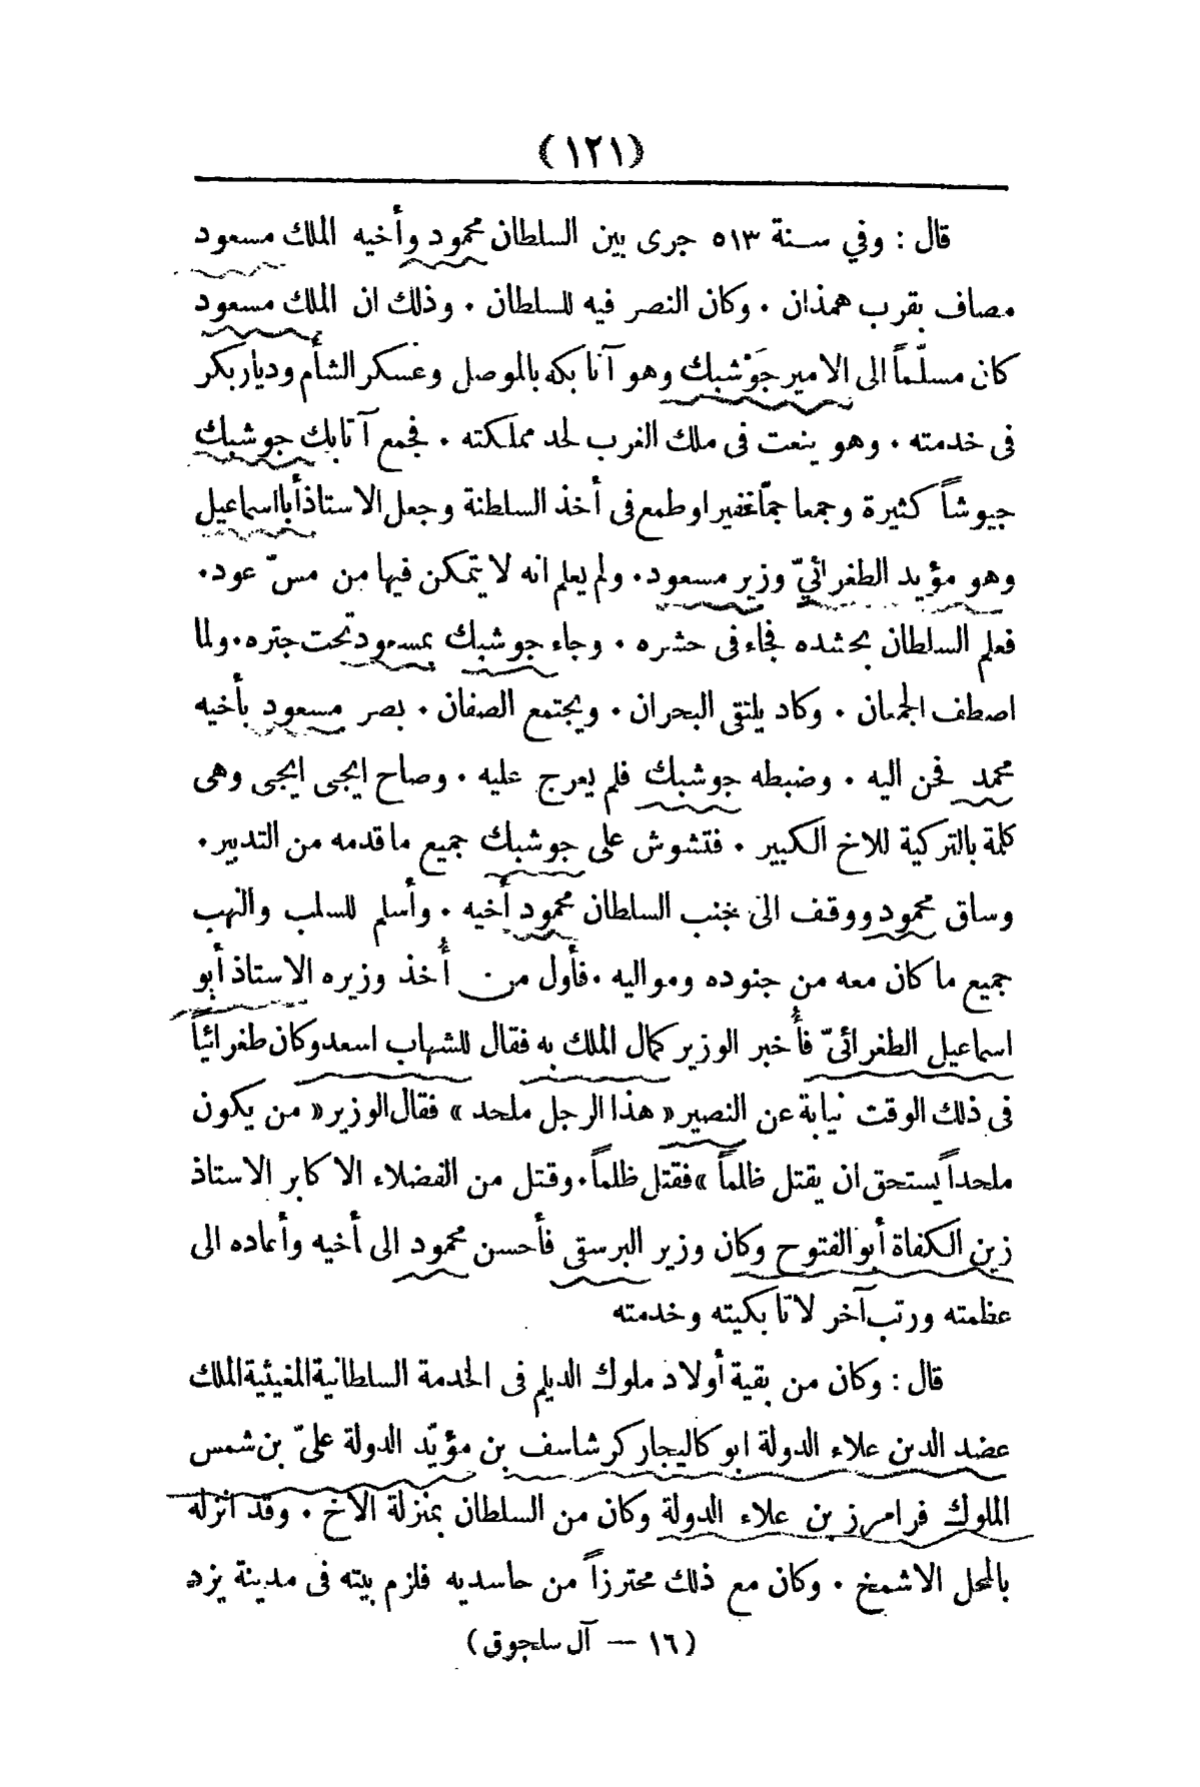 (١٢١)
قال : وفي سنة ٥١٣ جرى بين السلطان محمود وأخيه الملك مسعود
مصاف بقرب همذان . وكان النصر فيه للسلطان . وذلك ان الملك مسعود
كان مسلّماً الى الامير جَوْشبك وهو آتابكه بالموصل وعسكر الشأم وديار بكر
فى خدمته . وهو ينعت فى ملك الغرب لحد مملكته . فجمع آتابك جوشبك
جيوشاً كثيرة وجمعا جمّا غفيرا وطمع فى أخذ السلطنة وجعل الاستاذ أبا اسماعيل
وهو مؤيد الطغرائيّ وزير مسعود. ولم يعلم انه لا يتمكن فيها من مسّ عود.
فعلم السلطان بحشده فجاء فى حشره . وجاء جوشبك بمسعود تحت جتره. ولما
اصطف الجمعان . وكاد يلتقى البحران . ويجتمع الصفان . بصر مسعود بأخيه
محمد فحن اليه . وضبطه جوشبك فلم يعرج عليه . وصاح ايجى ايجى وهى
كلمة بالتركية للاخ الكبير . فتشوش على جوشبك جميع ما قدمه من التدبير .
وساق محمود ووقف الى بجنب السلطان محمود أخيه . وأسلم للسلب والنهب
جميع ما كان معه من جنوده ومواليه . فأول من أُخذ وزيره الاستاذ أبو
اسماعيل الطغرائىّ فأُخبر الوزير كمال الملك به فقال للشهاب اسعد وكان طغرائيّاً
فى ذلك الوقت نيابة عن النصير « هذا الرجل ملحد » فقال الوزير « من يكون
ملحداً يستحق ان يقتل ظالماً » فقتل ظلماً . وقتل من الفضلاء الاكابر الاستاذ
زين الكفاة أبو الفتوح وكان وزير البرسقى فأحسن محمود الى أخيه وأعاده الى
عظمته ورتب آخر لاتابكيته وخدمته
قال : وكان من بقية أولاد ملوك الديلم فى الخدمة السلطانية المغيثية الملك
عضد الدين علاء الدولة ابو كاليجار كرشاسف بن مؤيّد الدولة علىّ بن شمس
الملوك فرامرز بن علاء الدولة وكان من السلطان بمنزلة الاخ . وقد انزله
بالمحل الاشمخ . وكان مع ذلك محترزاً من حاسديه فلزم بيته فى مدينة يزد
(١٦ — آل سلجوق)